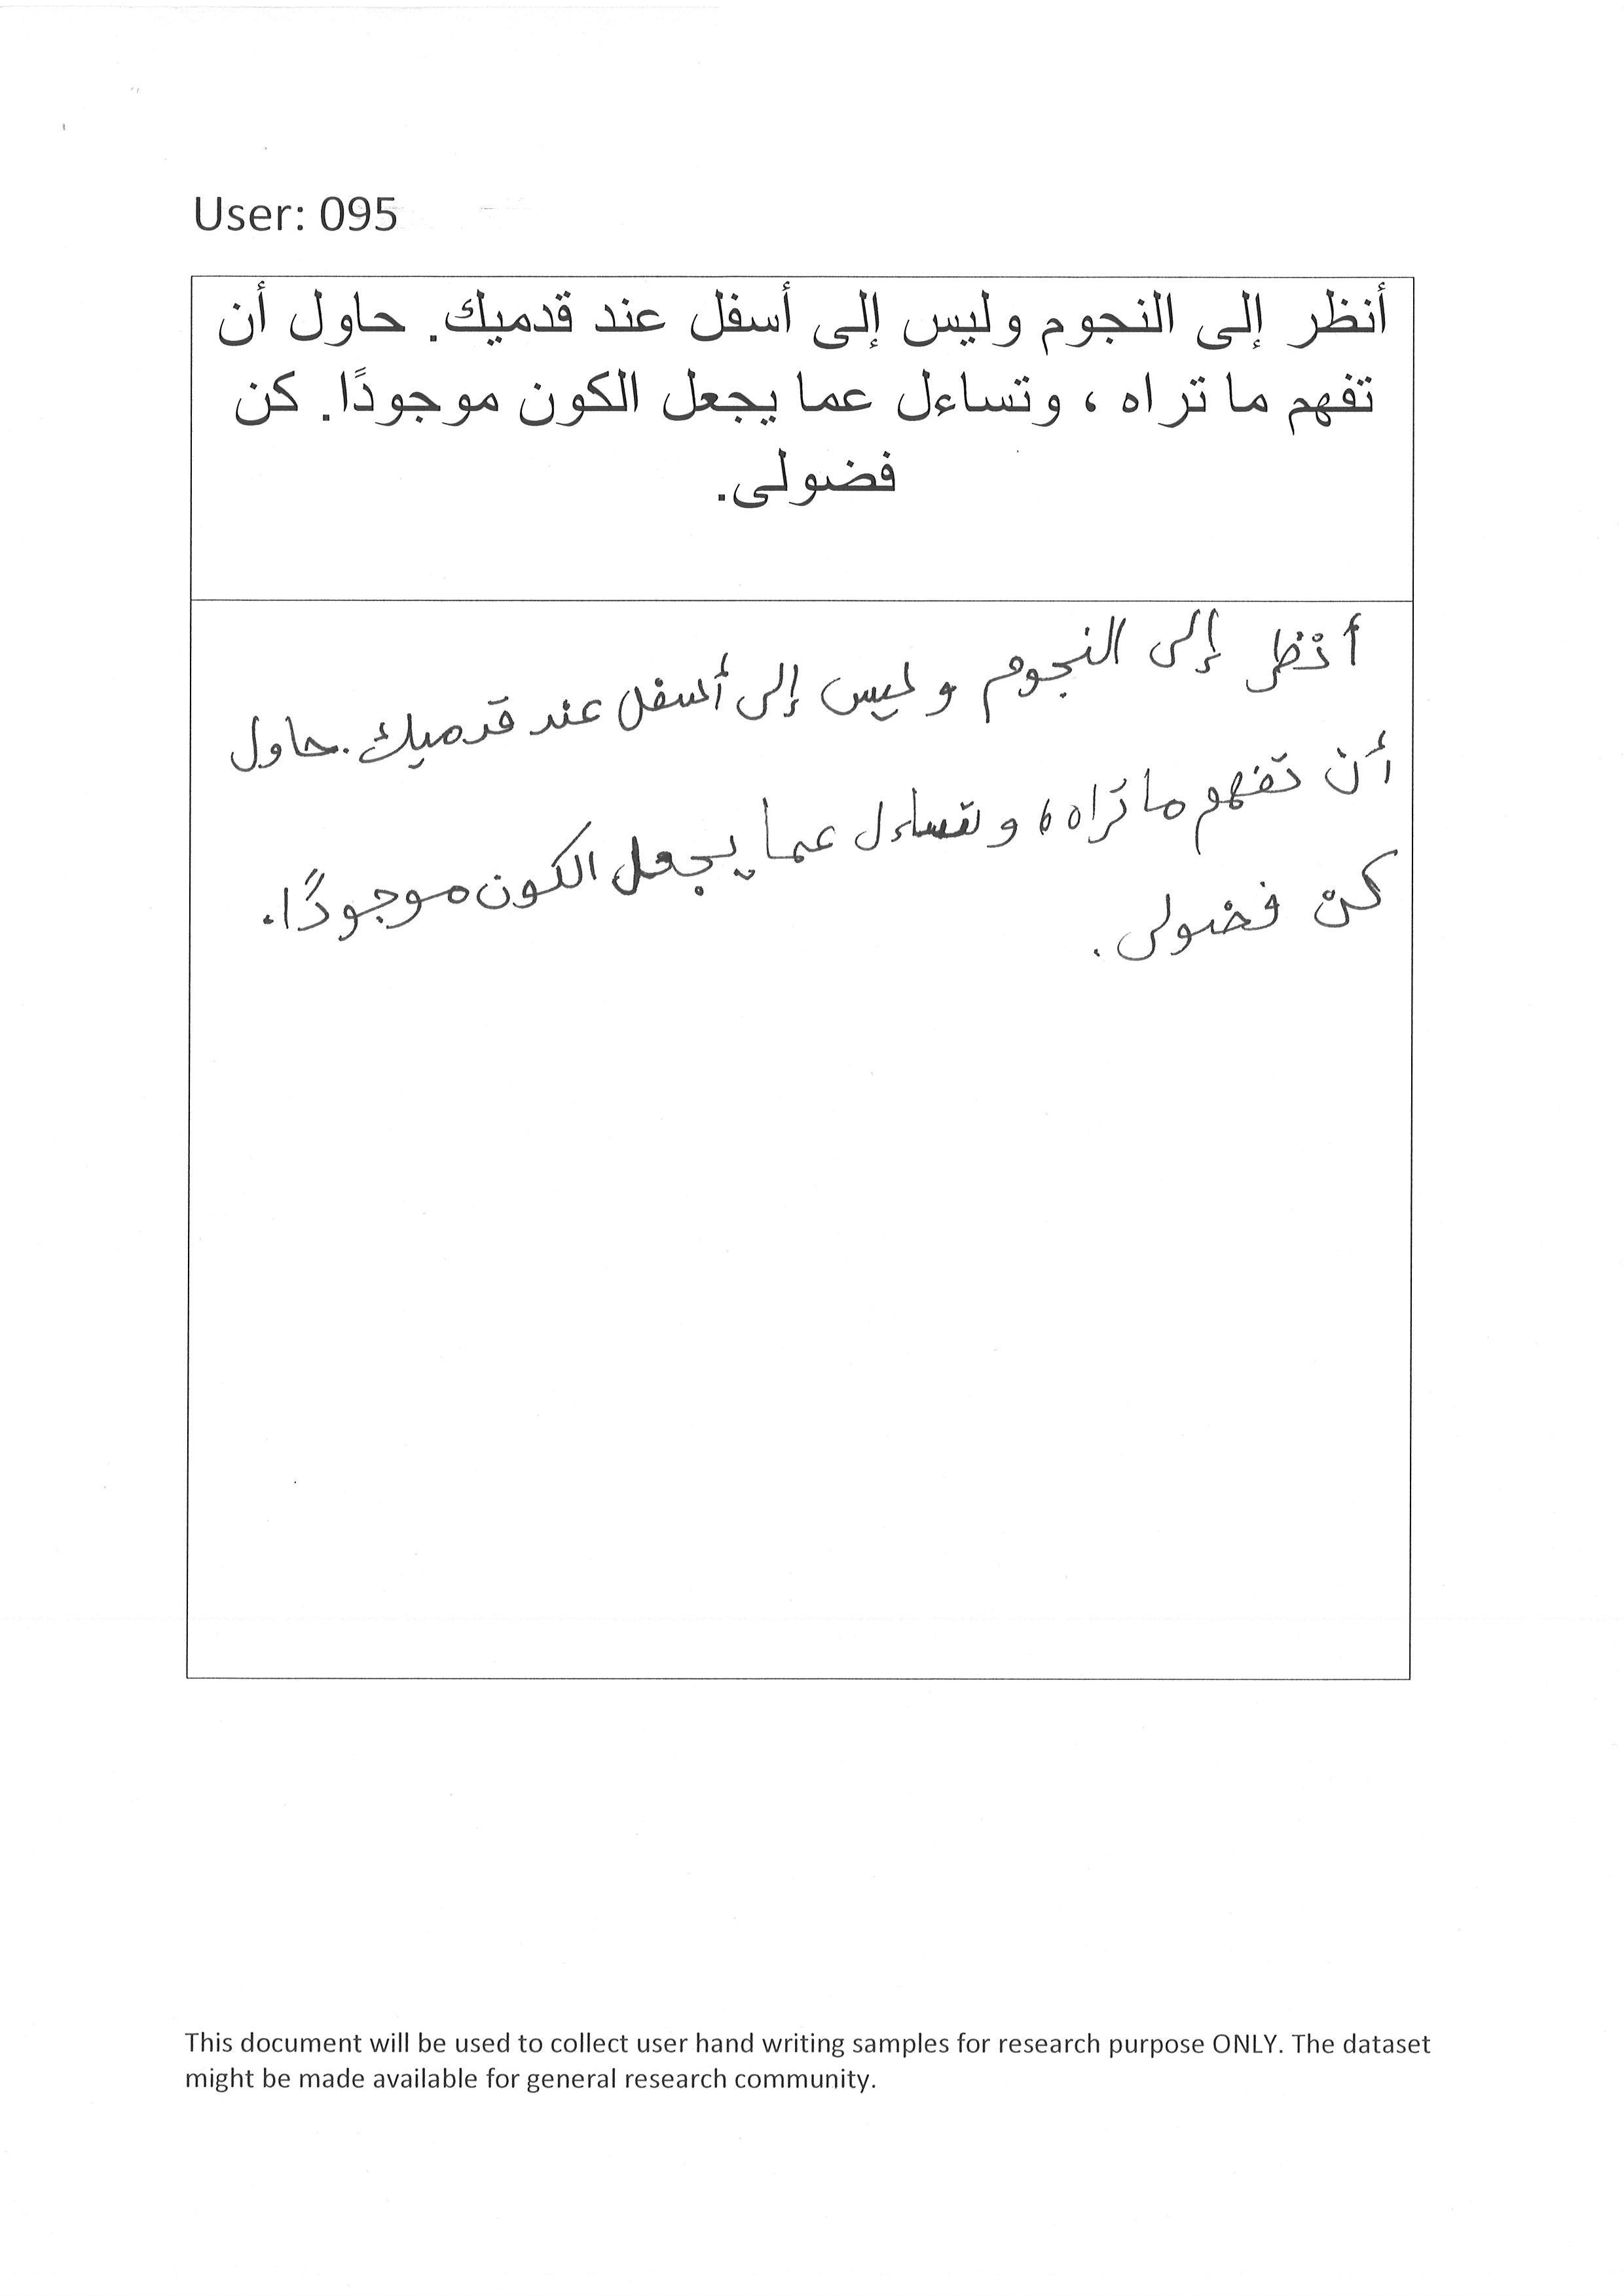 User: 095
أنظر إلى النجوم وليس إلى أسفل عند قدميك. حاول أن
تفهم ما تراه ، وتساءل عما يجعل الكون موجودًا. كن
فضولى.
أنظر إلى النجوم وليس إلى أسفل عند قدميك. حاول
أن تفهم ما تراه ، وتساءل عما يجعل الكون موجودًا.
كن فضولى.
This document will be used to collect user hand writing samples for research purpose ONLY. The dataset
might be made available for general research community.